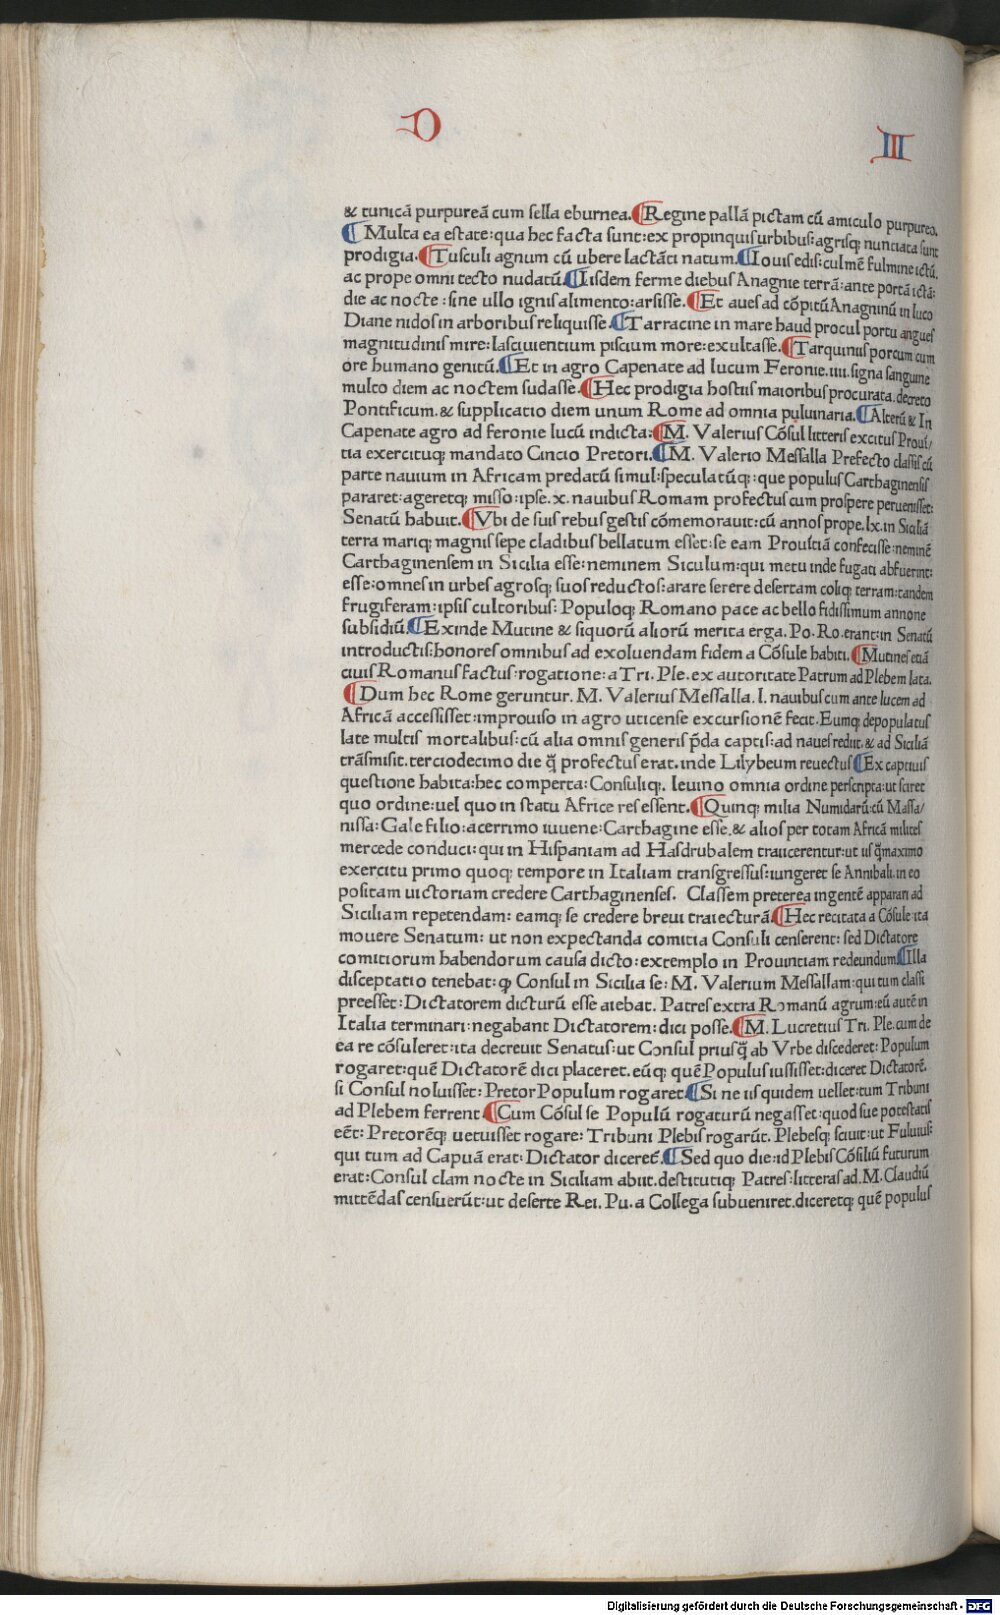 D
III
& tunicā purpureā cum sella eburnea. ¶ Regine pallā pictam cū amiculo purpureo.
¶ Multa ea estate: qua hec facta sunt: ex propinquis urbibus: agrisq; nunciata sunt
prodigia. ¶ Tusculi agnum cū ubere lactāti natum. ¶ Iouis edis: culmē fulmine ictū.
ac prope omni tecto nudatū. ¶ Iisdem ferme diebus Anagnie terrā: ante portā ictā:
die ac nocte: sine ullo ignis alimento: arsisse. ¶ Et aues ad cōpitū Anagninū in luco
Diane nidos in arboribus reliquisse. ¶ Tarracine in mare haud procul portu angues
magnitudinis mire: lasciuientium piscium more: exultasse. ¶ Tarquiniis porcum cum
ore humano genitū. ¶ Et in agro Capenate ad lucum Feronie. iiii. signa sanguine
multo diem ac noctem sudasse. ¶ Hec prodigia hostiis maioribus procurata. decreto
Pontificum. & supplicatio diem unum Rome ad omnia puluinaria. ¶ Alterū & In
Capenate agro ad feronie lucū indicta: ¶ M. Valerius Cōsul litteris excitus Prouī/
tia exercituq; mandato Cincio Pretori. ¶ M. Valerio Messalla Prefecto classis cū
parte nauium in Africam predatū simul: speculatūq;: que populus Carthaginensis
pararet: ageretq; misso: ipse. x. nauibus Romam profectus cum prospere peruenisset:
Senatū habuit. ¶ Vbi de suis rebus gestis cōmemorauit: cū annos prope. lx. in Siciliā
terra mariq; magnis sepe cladibus bellatum esset: se eam Prouītiā confecisse: neminē
Carthaginensem in Sicilia esse: neminem Siculum: qui metu inde fugati abfuerint:
esse: omnes in urbes agrosq; suos reductos: arare serere desertam coliq; terram: tandem
frugiferam: ipsis cultoribus: Populoq; Romano pace ac bello fidissimum annone
subsidiū. ¶ Exinde Mutine & siquorū aliorū merita erga. Po. Ro. erant: in Senatū
introductis: honores omnibus ad exoluendam fidem a Cōsule habiti. ¶ Mutines etiā
ciuis Romanus factus: rogatione: a Tri. Ple. ex autoritate Patrum ad Plebem lata.
¶ Dum hec Rome geruntur. M. Valerius Messalla. l. nauibus cum ante lucem ad
Africā accessisset: improuiso in agro uticense excursionē fecit. Eumq; depopulatus
late multis mortalibus: cū alia omnis generis p̄da captis: ad naues rediit. & ad Siciliā
trāsmisit. terciodecimo die q̄ profectus erat. inde Lilybeum reuectus ¶ Ex captiuis
questione habita: hec comperta: Consuliq;. leuino omnia ordine perscripta: ut sciret
quo ordine: uel quo in statu Africe res essent. ¶ Quinq; milia Numidarū: cū Massa/
nissa: Gale filio: acerrimo iuuene: Carthagine esse. & alios per totam Africā milites
mercede conduci: qui in Hispaniam ad Hasdrubalem traiicerentur: ut iis q̄maximo
exercitu primo quoq; tempore in Italiam transgressus: iungeret se Annibali. in eo
positam uictoriam credere Carthaginenses. Classem preterea ingentē apparari ad
Siciliam repetendam: eamq; se credere breui traiecturā. ¶ Hec recitata a Cōsule ita
mouere Senatum: ut non expectanda comitia Consuli censerent: sed Dictatore
comitiorum habendorum causa dicto: extemplo in Prouintiam redeundum ¶ Illa
disceptatio tenebat: ꝙ Consul in Sicilia se: M. Valerium Messallam: qui tum classi
preesset: Dictatorem dicturū esse aiebat. Patres extra Romanū agrum: eū autē in
Italia terminari: negabant Dictatorem: dici posse. ¶ M. Lucretius Tri. Ple. cum de
ea re cōsuleret: ita decreuit Senatus: ut Consul priusq̄ ab Vrbe discederet: Populum
rogaret: quē Dictatorē dici placeret. eūq; quē Populus iussisset: diceret Dictatorē.
si Consul noluisset: Pretor Populum rogaret ¶ Si ne iis quidem uellet: tum Tribuni
ad Plebem ferrent ¶ Cum Cōsul se Populū rogaturū negasset: quod sue potestatis
eēt: Pretorēq; uetuisset rogare: Tribuni Plebis rogarūt. Plebesq; sciuit: ut Fuluius:
qui tum ad Capuā erat: Dictator diceret̄. ¶ Sed quo die: id Plebis Cōsiliū futurum
erat: Consul clam nocte in Siciliam abiit. destitutiq; Patres: litteras ad. M. Claudiū
mittēdas censuerūt: ut deserte Rei. Pu. a Collega subueniret. diceretq; quē populus
Digitalisierung gefördert durch die Deutsche Forschungsgemeinschaft - DFG